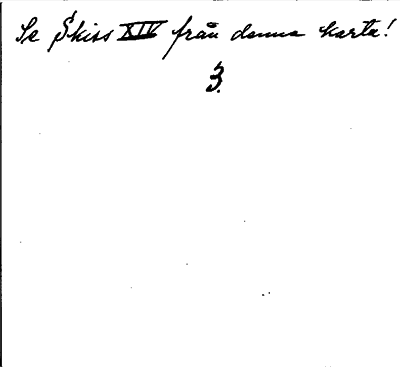 Se Skiss XIV från denna karta!
3.